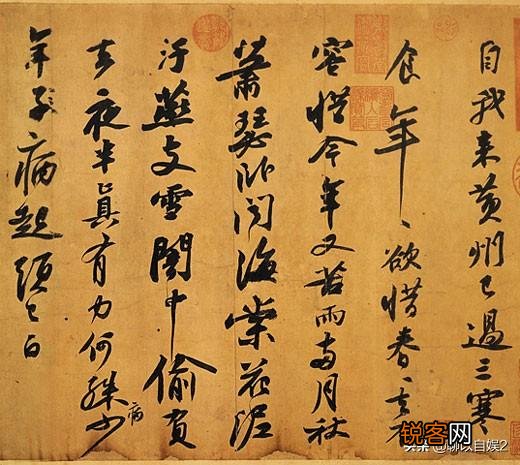 自我来黄州已過三寒
食年〻欲惜春〻去不
容惜今年又苦雨兩月秋
蕭瑟卧聞海棠花泥
汙燕支雪闇中偷負
去夜半真有力何殊少
病
年子病起頭已白
锐客网
@聊以自娱2